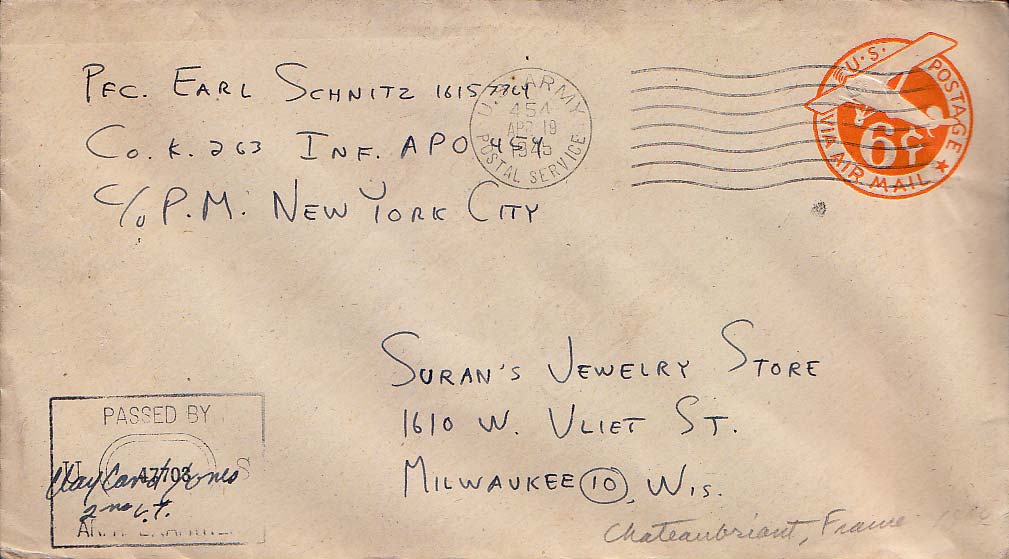 PFC. EARL SCHNITZ
CO. K. 263 INF. APO 454
C/O P.M. NEW YORK CITY
U.S. ARMY
454
APR 19
1945
POSTAL SERVICE
U.S. POSTAGE
6¢
VIA AIR MAIL
SURAN'S JEWELRY STORE
1610 W. VLIET ST.
MILWAUKEE 10, WIS.
Chateaubriant, France
PASSED BY
U S
47703
Jones
2nd Lt.
ARMY EXAMINER